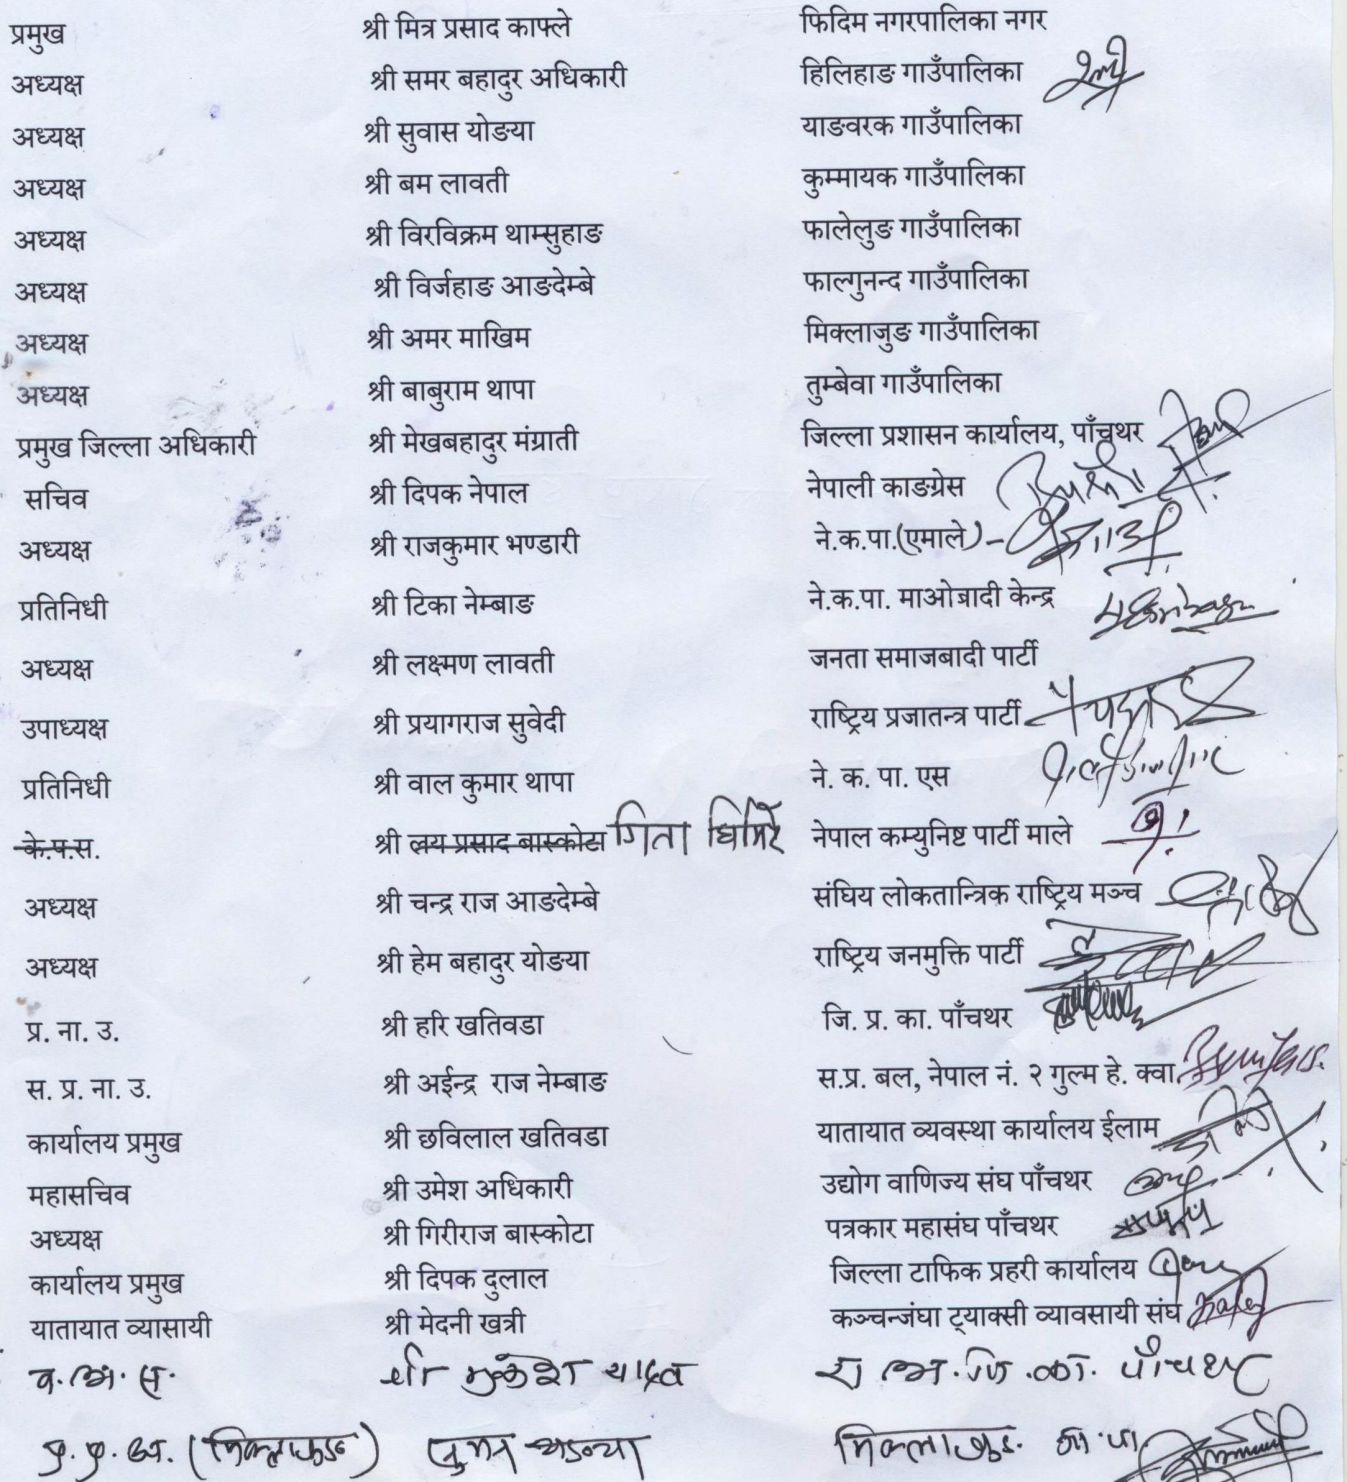 प्रमुख श्री मित्र प्रसाद काफ्ले फिदिम नगरपालिका नगर
अध्यक्ष श्री समर बहादुर अधिकारी हिलिहाङ गाउँपालिका
अध्यक्ष श्री सुवास योङया याङवरक गाउँपालिका
अध्यक्ष श्री बम लावती कुम्मायक गाउँपालिका
अध्यक्ष श्री विरविक्रम थाम्सुहाङ फालेलुङ गाउँपालिका
अध्यक्ष श्री विर्जहाङ आङदेम्बे फाल्गुनन्द गाउँपालिका
अध्यक्ष श्री अमर माखिम मिक्लाजुङ गाउँपालिका
अध्यक्ष श्री बाबुराम थापा तुम्बेवा गाउँपालिका
प्रमुख जिल्ला अधिकारी श्री मेखबहादुर मंग्राती जिल्ला प्रशासन कार्यालय, पाँचथर
सचिव श्री दिपक नेपाल नेपाली काङग्रेस
अध्यक्ष श्री राजकुमार भण्डारी ने.क.पा.(एमाले)
प्रतिनिधी श्री टिका नेम्बाङ ने.क.पा. माओबादी केन्द्र
अध्यक्ष श्री लक्ष्मण लावती जनता समाजबादी पार्टी
उपाध्यक्ष श्री प्रयागराज सुवेदी राष्ट्रिय प्रजातन्त्र पार्टी
प्रतिनिधी श्री वाल कुमार थापा ने. क. पा. एस
के.प.स. श्री लय प्रसाद बास्कोटा गिता घिमिरे नेपाल कम्युनिष्ट पार्टी माले
अध्यक्ष श्री चन्द्र राज आङदेम्बे संघिय लोकतान्त्रिक राष्ट्रिय मञ्च
अध्यक्ष श्री हेम बहादुर योङया राष्ट्रिय जनमुक्ति पार्टी
प्र. ना. उ. श्री हरि खतिवडा जि. प्र. का. पाँचथर
स. प्र. ना. उ. श्री अईन्द्र राज नेम्बाङ स.प्र. बल, नेपाल नं. २ गुल्म हे. क्वा.
कार्यालय प्रमुख श्री छविलाल खतिवडा यातायात व्यवस्था कार्यालय ईलाम
महासचिव श्री उमेश अधिकारी उद्योग वाणिज्य संघ पाँचथर
अध्यक्ष श्री गिरीराज बास्कोटा पत्रकार महासंघ पाँचथर
कार्यालय प्रमुख श्री दिपक दुलाल जिल्ला टाफिक प्रहरी कार्यालय
यातायात व्यासायी श्री मेदनी खत्री कञ्चन्जंघा ट्याक्सी व्यावसायी संघ
व.अ.स. श्री मुकेश यादव रा.अ.जि.का. पाँचथर
प्र.प्र.अ. (मिक्लाजुङ) मिक्लाजुङ गा.पा.